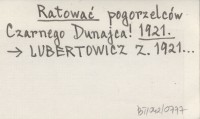 Ratować pogorzelców
Czarnego Dunajca! 1921.
→ LUBERTOWICZ Z. 1921...